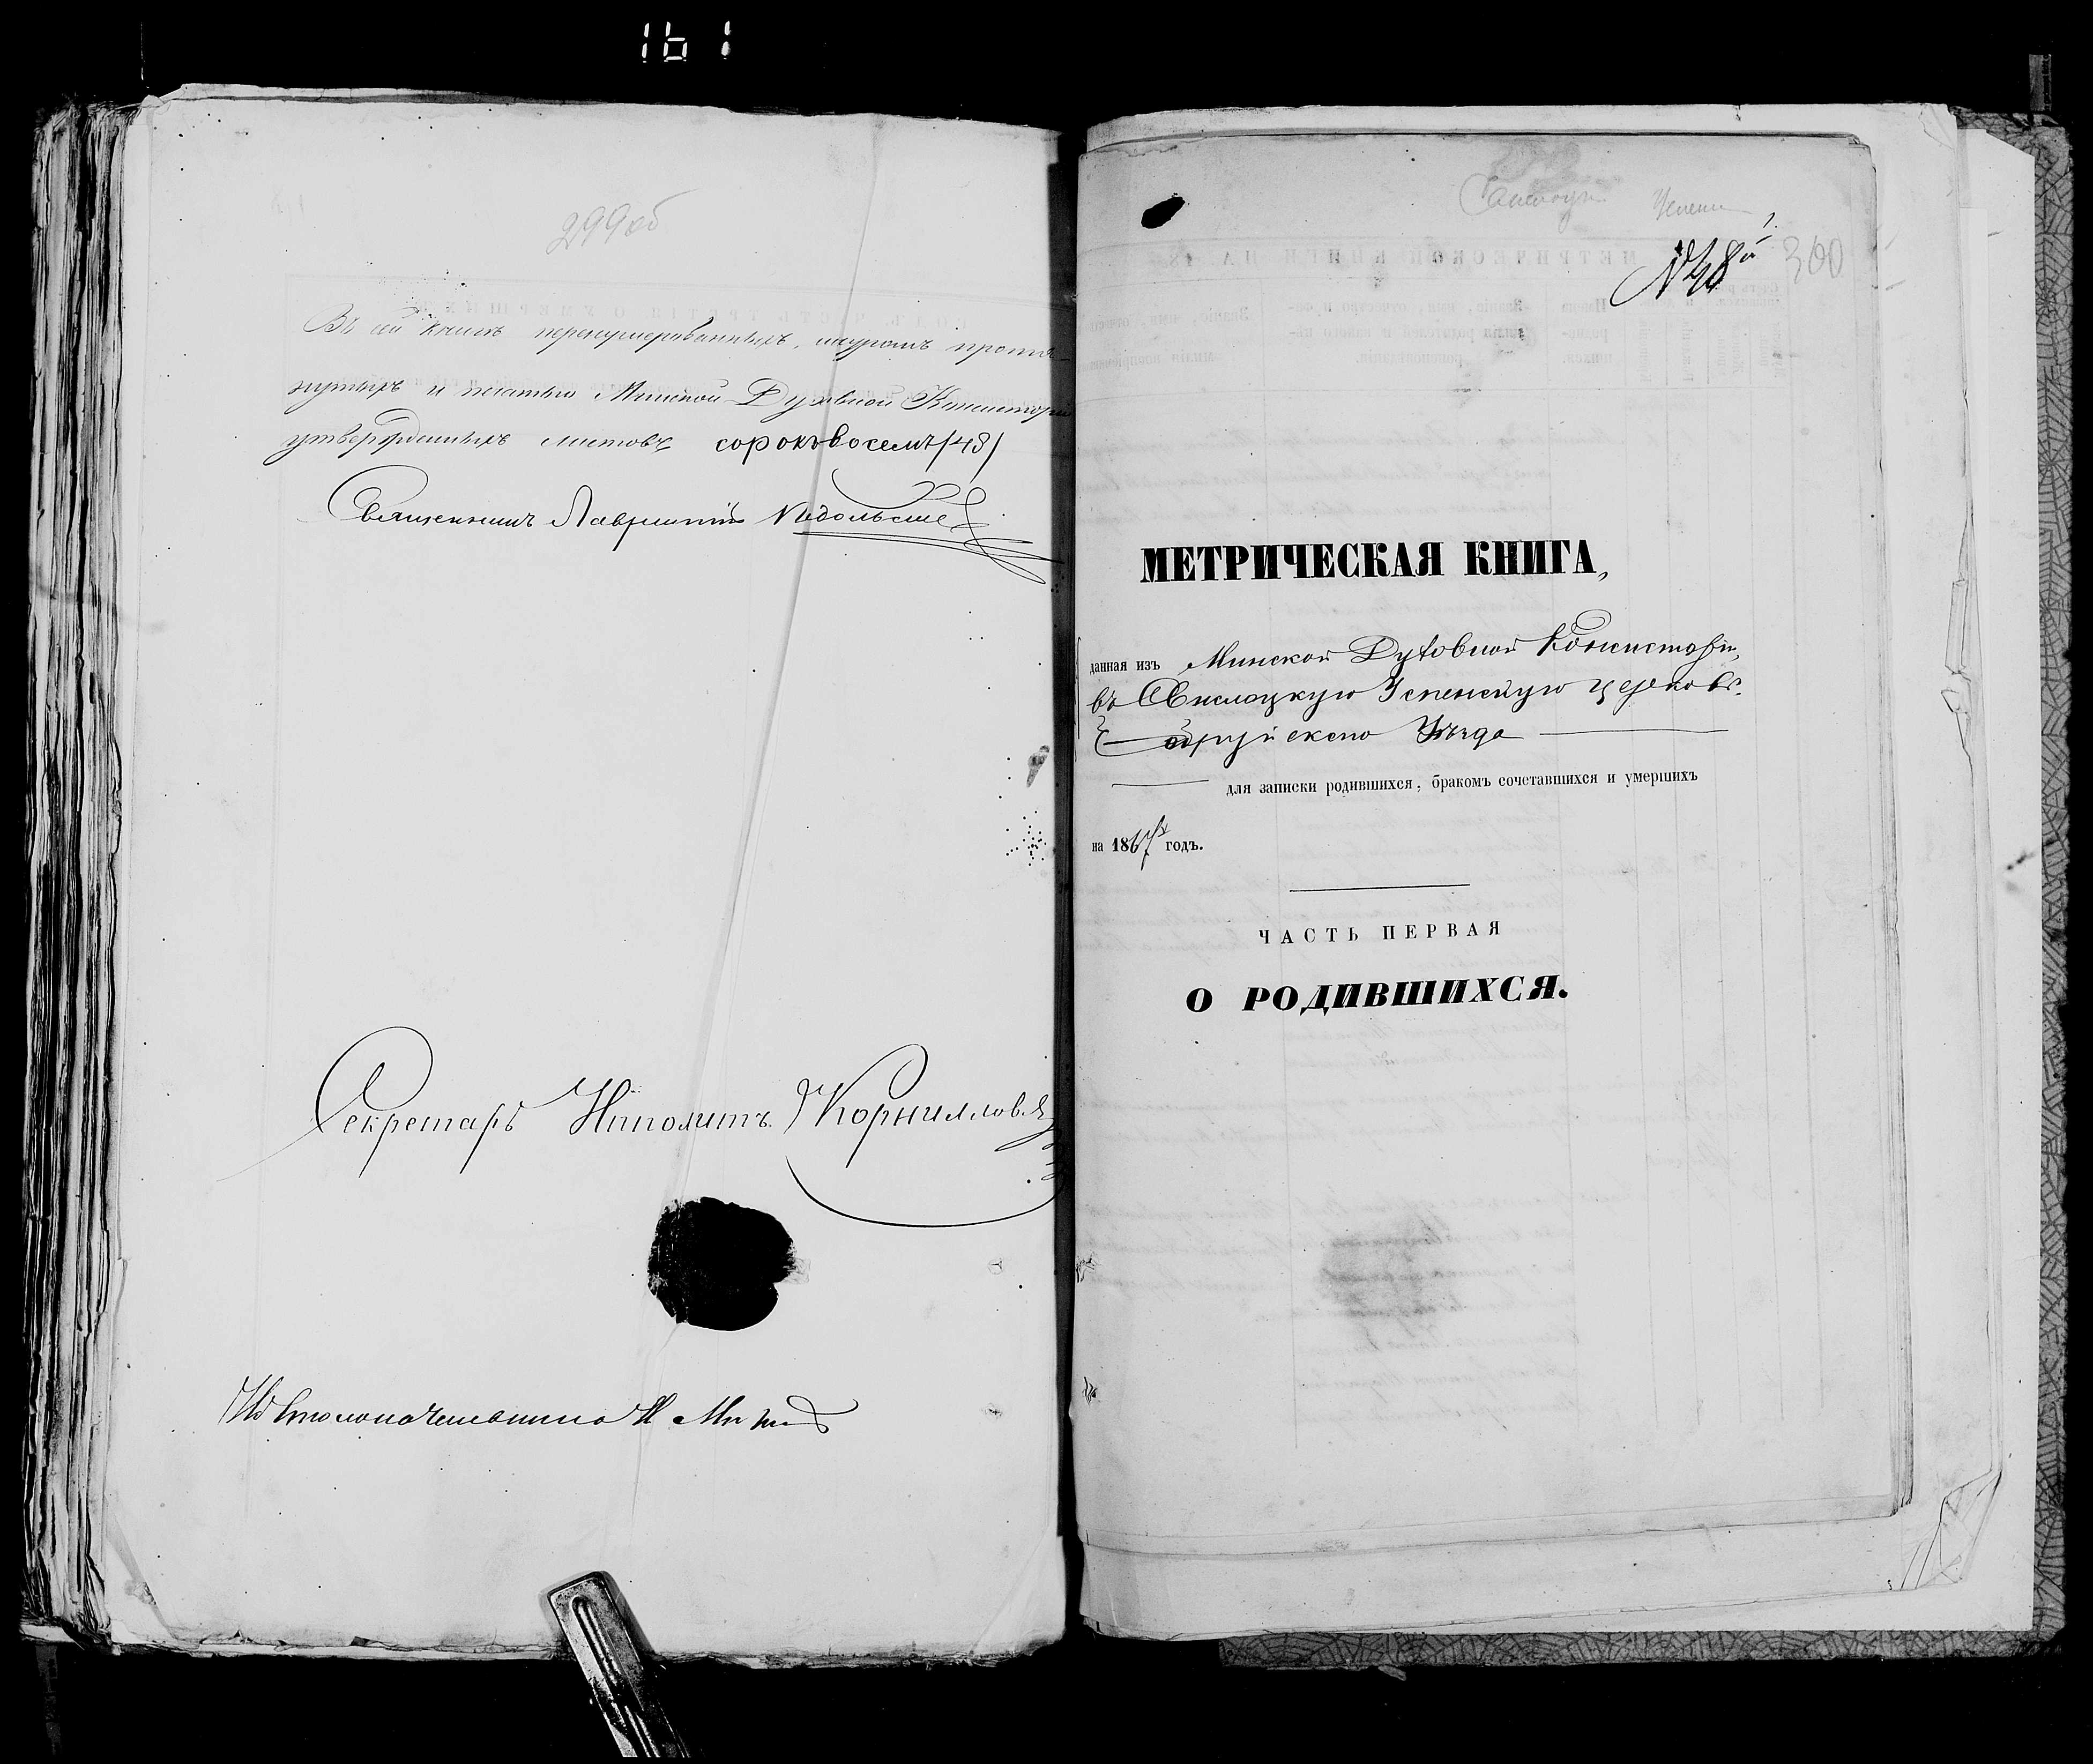 161
299об
Въ сей книгѣ перенумерованныхъ, шнуромъ протя-
нутыхъ и печатью Минской Духовной Консисторіи
утвержденныхъ листовъ сорокъ восемь /48/
Священникъ Лаврентій
Секретарь Ипполитъ Корниловъ
Свислоцк. Успенс
1.
300
МЕТРИЧЕСКАЯ КНИГА,
данная изъ Минской Духовной Консисторіи,
въ Свислоцкую Успенскую церковь
Бобруйскаго Уѣзда
для записки родившихся, бракомъ сочетавшихся и умершихъ
на 1867 годъ.
ЧАСТЬ ПЕРВАЯ
О РОДИВШИХСЯ.